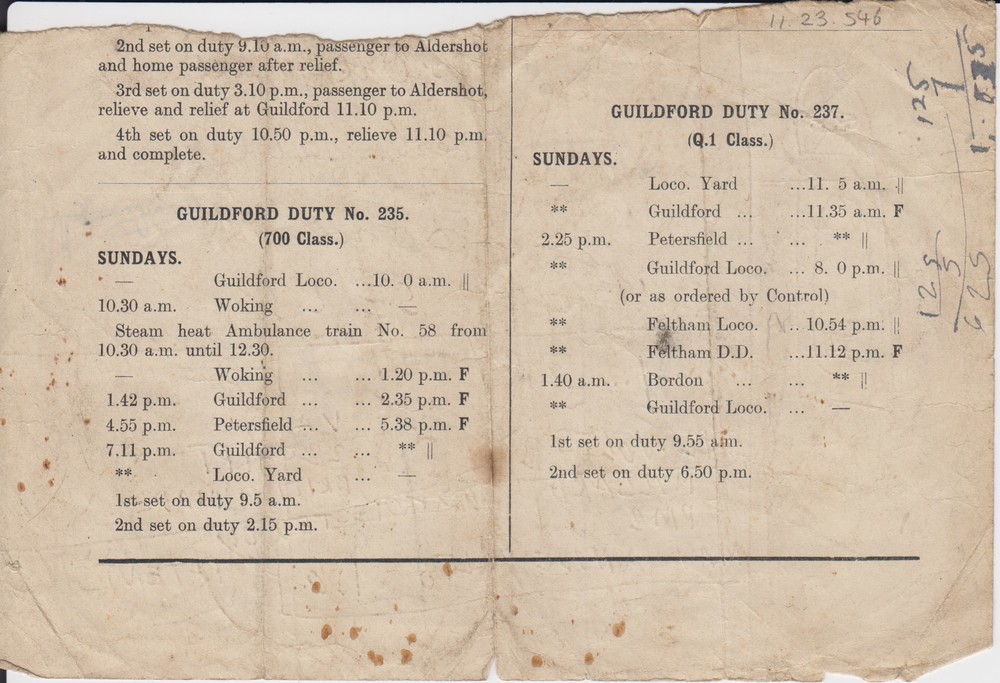 2nd set on duty 9.10 a.m., passenger to Aldershot
and home passenger after relief.
3rd set on duty 3.10 p.m., passenger to Aldershot,
relieve and relief at Guildford 11.10 p.m.
4th set on duty 10.50 p.m., relieve 11.10 p.m.
and complete.
GUILDFORD DUTY No. 235.
(700 Class.)
SUNDAYS.
— Guildford Loco. ...10. 0 a.m. ||
10.30 a.m. Woking ... ... —
Steam heat Ambulance train No. 58 from
10.30 a.m. until 12.30.
— Woking ... ... 1.20 p.m. F
1.42 p.m. Guildford ... ... 2.35 p.m. F
4.55 p.m. Petersfield ... ... 5.38 p.m. F
7.11 p.m. Guildford ... ... ** ||
** Loco. Yard ... —
1st set on duty 9.5 a.m.
2nd set on duty 2.15 p.m.
11. 23. 546
GUILDFORD DUTY No. 237.
(Q.1 Class.)
SUNDAYS.
— Loco. Yard ...11. 5 a.m. ||
** Guildford ... ...11.35 a.m. F
2.25 p.m. Petersfield ... ... ** ||
** Guildford Loco. ... 8. 0 p.m. ||
(or as ordered by Control)
** Feltham Loco. ... 10.54 p.m. ||
** Feltham D.D. ...11.12 p.m. F
1.40 a.m. Bordon ... ... ** ||
** Guildford Loco. ... —
1st set on duty 9.55 a.m.
2nd set on duty 6.50 p.m.
125
125
5
625